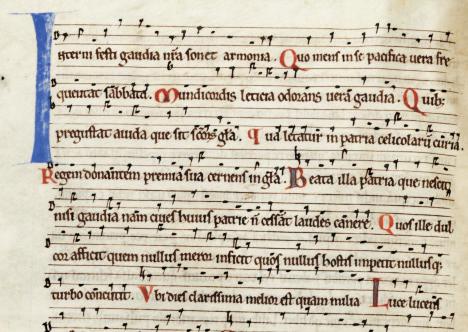 Interni festi gaudia nr̄a sonet armonia. Quo mens in se pacifica uera fre
quentat sabbata. Mundi cordis leticia odorans uera gaudia. Quib;
pregustat auida que sit scōrꝫ gl̄a. Qua letatur in patria celicolarū curia.
Regem donantem premia sua cernens in gl̄a. Beata illa patria que nescit
nisi gaudia nam ciues huius patrie n̄ cessant laudes canere. Quos ille dul
cor afficit quem nullus meror inficit quōs nullus hostis impetit nullusq;
turbo concutit. Vbi dies clarissima melior est quam milia Luce lucens